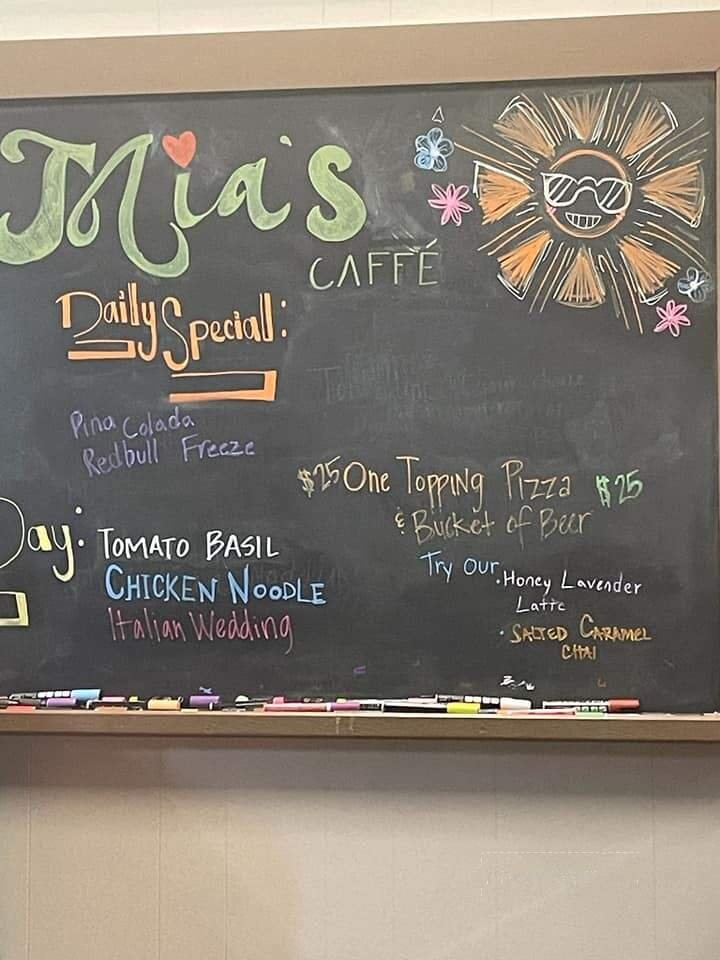 Mia's
CAFFÉ
Daily Special:
Pina Colada
Redbull Freeze
$25 One Topping Pizza $25
& Bucket of Beer
Day:
TOMATO BASIL
CHICKEN NOODLE
Italian Wedding
Try Our
• Honey Lavender
Latte
• SALTED CARAMEL
CHAI